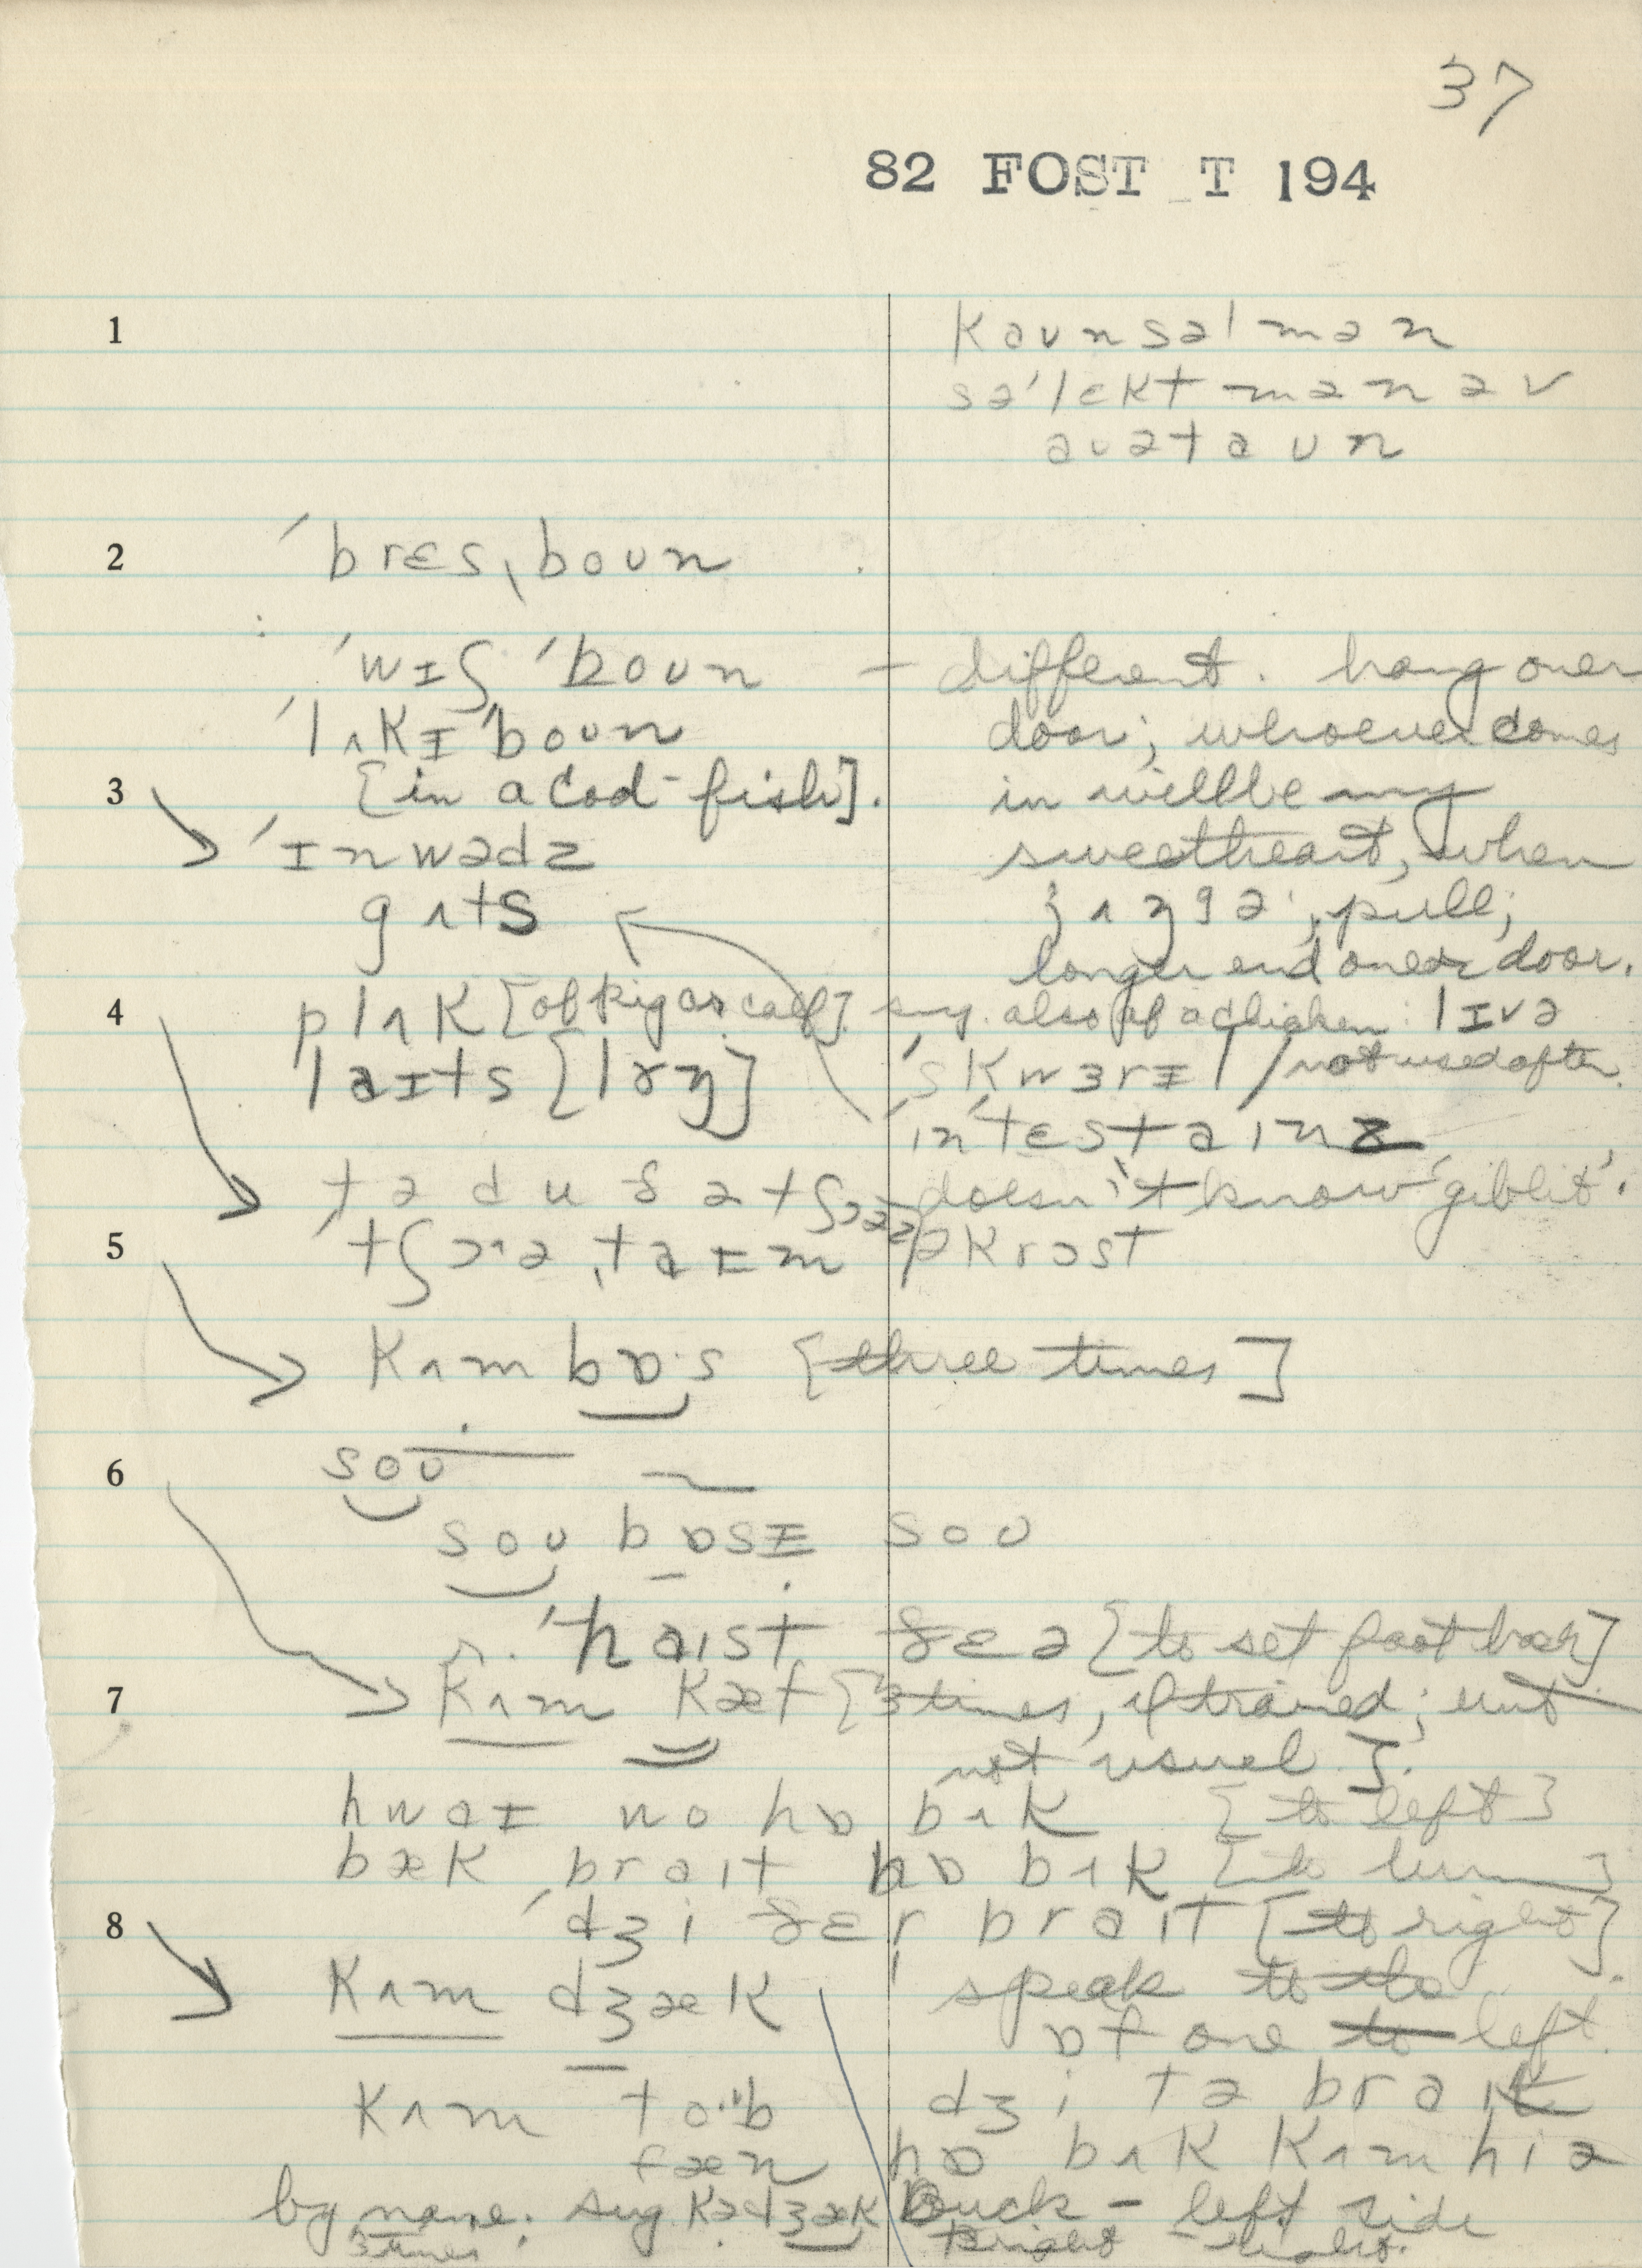 37
82 FOST T 194
1
kaunsəlmən
sə'lɛktmənəv
auətaun
2
'brɛsˌboun
'wɪʃ 'boun – different. hang over
'lʌkɪ'boun door; whoever comes
3 [in a cod-fish]. in will be my
'ɪnwədz sweetheart, when
gʌts ʒʌŋgə, pull;
longer end over door.
4 plʌk [of pig or calf] sug. also of a chicken: lɪvə
laɪts [lɤŋ] 'skwɜrɪl / not used often.
in'tɛstainz
tə du ðə tʃɔəz doesn't know 'giblit'.
5 'tʃɔˑəˌtaɪm əkrɔst
kʌm bɒˑs [three times]
6 sou
sou bɒsɪ sou
'haist ðɛə [to set foot back]
7 kʌm kæf [3 times, if trained; but
not usual].
hwoɪ wo hɒ bʌk [to left]
bæk brait hɒ bʌk [to turn]
8 'dʒi ðɛr brait [to right]
kʌm dʒæk speak to the
ɒf one to left.
kʌm toˑb dʒi tə brait
fæn hɒ bʌk kʌm hiə
by name. sug. kədʒæk Buck – left side
3 times Bright – right.